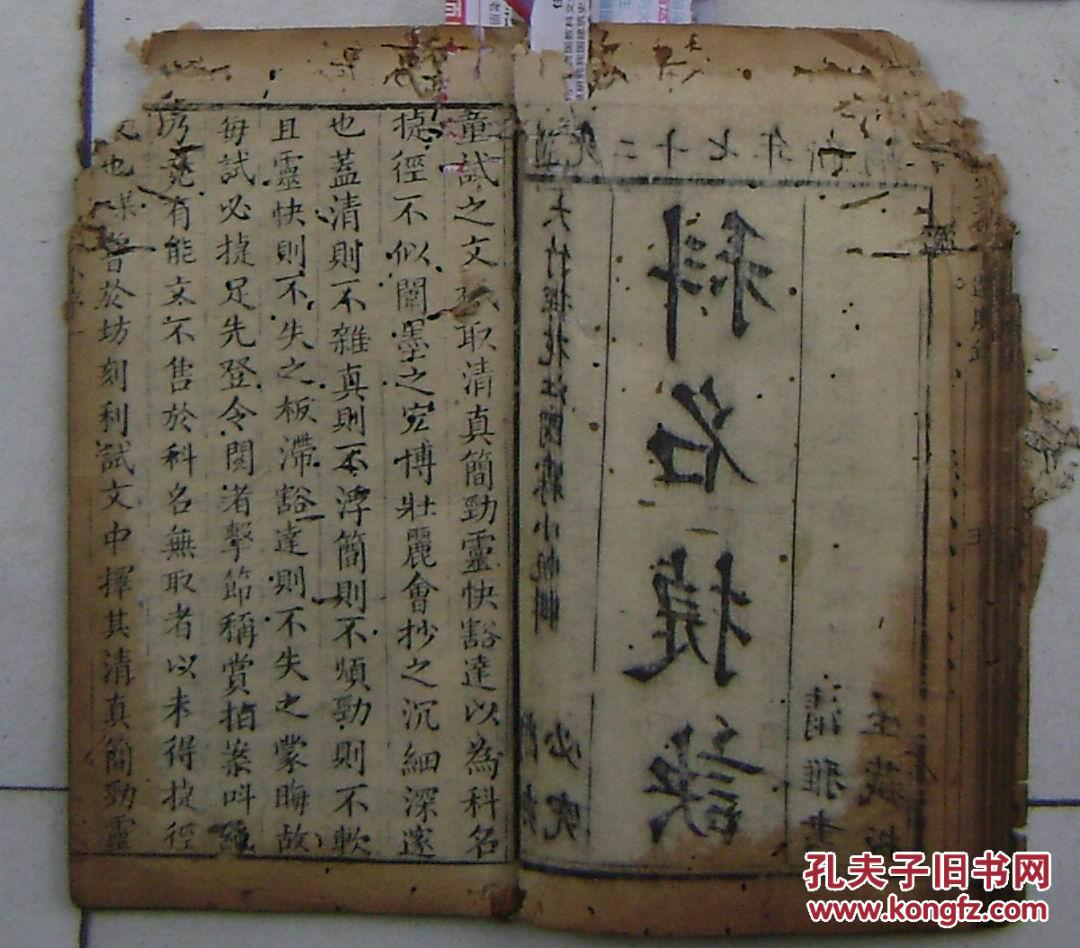 道光二十七年新鐫
大竹探花江國霖小帆輯
必究
科名捷訣
清雅書
童試之文取清真簡勁靈快豁達以為科名
捷徑不似闈墨之宏博壯麗會抄之沉細深邃
也蓋清則不雜真則不浮簡則不煩勁則不軟
且靈快則不失之板滯豁達則不失之蒙晦故
每試必捷足先登令閱者擊節稱賞拍案叫絕
乃竟有能文不售於科名無取者以未得捷徑
也嘗於坊刻利試文中擇其清真簡勁靈
孔夫子旧书网
www.kongfz.com